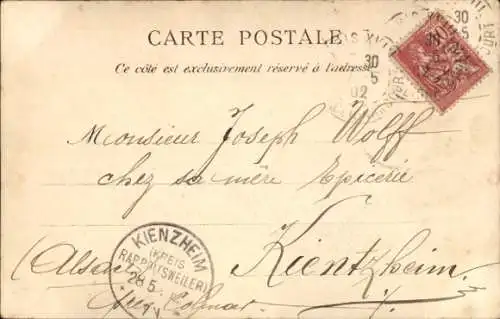 CARTE POSTALE
Ce côté est exclusivement réservé à l'adresse
30
5
02
30
5
Monsieur Joseph Wolff
chez sa mère Epicerie
Kientzheim
(Alsace
près Colmar
KIENZHEIM
(KREIS
RAPPOLTSWEILER)
28 5